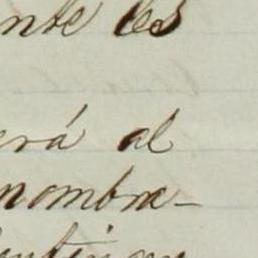 nte les
erá al
nombra-